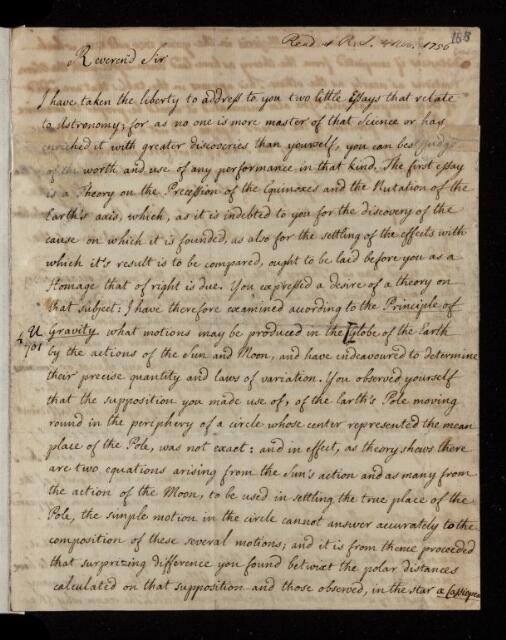 188
Read at R.S. 4 Nov. 1756
Reverend Sir
I have taken the liberty to address to you two little Essays that relate
to Astronomy; for as no one is more master of that Science or has
enriched it with greater discoveries than yourself, you can best judge
of the worth and use of any performance in that kind. The first essay
is a Theory on the Precession of the Equinoxes and the Nutation of the
Earth's axis, which, as it is indebted to you for the discovery of the
cause on which it is founded, as also for the settling of the effects with
which it's result is to be compared, ought to be laid before you as a
Homage that of right is due. You expressed a desire of a theory on
that subject: I have therefore examined according to the Principle of
Gravity what motions may be produced in the Globe of the Earth
by the actions of the Sun and Moon, and have endeavoured to determine
their precise quantity and laws of variation. You observed yourself
that the supposition you made use of, of the Earth's Pole moving
round in the periphery of a circle whose center represented the mean
place of the Pole, was not exact: and in effect, as theory shows there
are two equations arising from the Sun's action and as many from
the action of the Moon, to be used in settling the true place of the
Pole, the simple motion in the circle cannot answer accurately to the
composition of these several motions; and it is from thence proceeded
that surprizing difference you found betwixt the polar distances
calculated on that supposition and those observed, in the star α Cassiopea